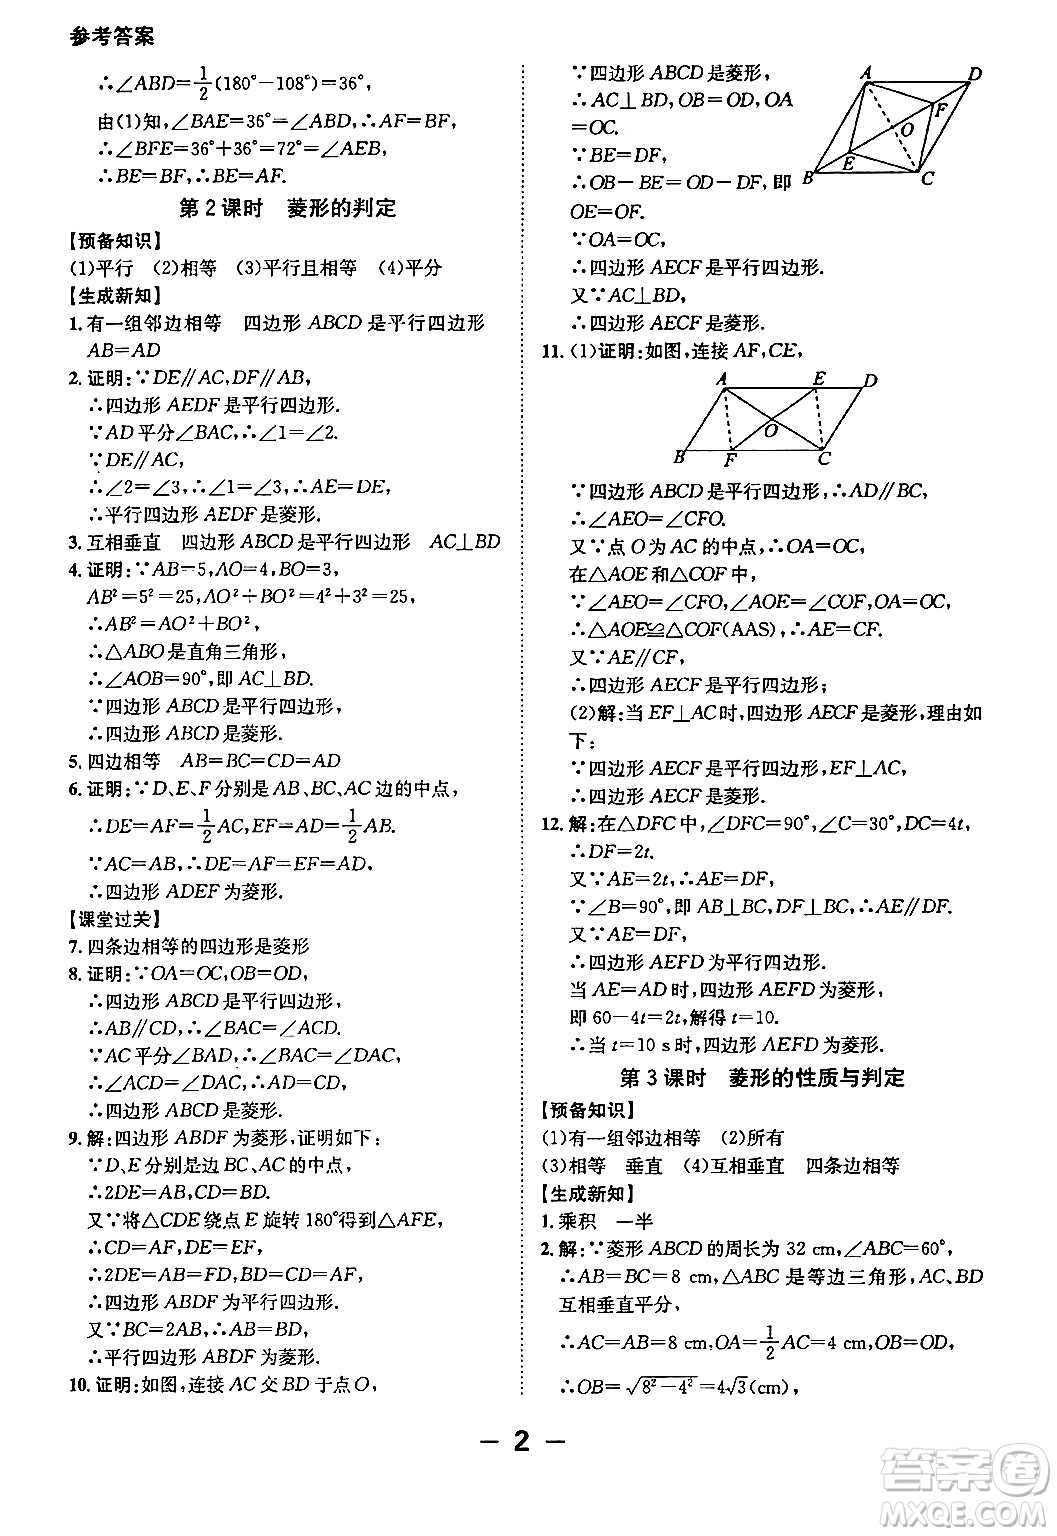 参考答案
∴∠ABD=1/2(180°-108°)=36°,
由(1)知,∠BAE=36°=∠ABD,∴AF=BF,
∴∠BFE=36°+36°=72°=∠AEB,
∴BE=BF,∴BE=AF.
第2课时 菱形的判定
【预备知识】
(1)平行 (2)相等 (3)平行且相等 (4)平分
【生成新知】
1.有一组邻边相等 四边形ABCD是平行四边形
AB=AD
2.证明:∵DE∥AC,DF∥AB,
∴四边形AEDF是平行四边形.
∵AD平分∠BAC,∴∠1=∠2.
∵DE∥AC,
∴∠2=∠3,∴∠1=∠3,∴AE=DE,
∴平行四边形AEDF是菱形.
3.互相垂直 四边形ABCD是平行四边形 AC⊥BD
4.证明:∵AB=5,AO=4,BO=3,
AB²=5²=25,AO²+BO²=4²+3²=25,
∴AB²=AO²+BO²,
∴△ABO是直角三角形,
∴∠AOB=90°,即AC⊥BD.
∵四边形ABCD是平行四边形,
∴四边形ABCD是菱形.
5.四边相等 AB=BC=CD=AD
6.证明:∵D、E、F分别是AB、BC、AC边的中点,
∴DE=AF=1/2AC,EF=AD=1/2AB.
∵AC=AB,∴DE=AF=EF=AD,
∴四边形ADEF为菱形.
【课堂过关】
7.四条边相等的四边形是菱形
8.证明:∵OA=OC,OB=OD,
∴四边形ABCD是平行四边形,
∴AB∥CD,∴∠BAC=∠ACD.
∵AC平分∠BAD,∴∠BAC=∠DAC,
∴∠ACD=∠DAC,∴AD=CD,
∴四边形ABCD是菱形.
9.解:四边形ABDF为菱形,证明如下:
∵D、E分别是边BC、AC的中点,
∴2DE=AB,CD=BD.
又∵将△CDE绕点E旋转180°得到△AFE,
∴CD=AF,DE=EF,
∴DE=AB=FD,BD=CD=AF,
∴四边形ABDF为平行四边形.
又∵BC=2AB,∴AB=BD,
∴平行四边形ABDF为菱形.
10.证明:如图,连接AC交BD于点O,
∵四边形ABCD是菱形,
∴AC⊥BD,OB=OD,OA
=OC.
∵BE=DF,
∴OB-BE=OD-DF,即
OE=OF.
∵OA=OC,
∴四边形AECF是平行四边形.
又∵AC⊥BD,
∴四边形AECF是菱形.
A D F O E B C
11.(1)证明:如图,连接AF,CE,
A E D O B F C
∵四边形ABCD是平行四边形,∴AD∥BC,
∴∠AEO=∠CFO.
又∵点O为AC的中点,∴OA=OC,
在△AOE和△COF中,
∵∠AEO=∠CFO,∠AOE=∠COF,OA=OC,
∴△AOE≌△COF(AAS),∴AE=CF.
又∵AE∥CF,
∴四边形AECF是平行四边形;
(2)解:当EF⊥AC时,四边形AECF是菱形,理由如
下:
∵四边形AECF是平行四边形,EF⊥AC,
∴四边形AECF是菱形.
12.解:在△DFC中,∠DFC=90°,∠C=30°,DC=4t,
∴DF=2t.
又∵AE=2t,∴AE=DF.
∵∠B=90°,即AB⊥BC,DF⊥BC,∴AE∥DF.
又∵AE=DF,
∴四边形AEFD为平行四边形.
当AE=AD时,四边形AEFD为菱形,
即60-4t=2t,解得t=10.
∴当t=10 s时,四边形AEFD为菱形.
第3课时 菱形的性质与判定
【预备知识】
(1)有一组邻边相等 (2)所有
(3)相等 垂直 (4)互相垂直 四条边相等
【生成新知】
1.乘积 一半
2.解:∵菱形ABCD的周长为32 cm,∠ABC=60°,
∴AB=BC=8 cm,△ABC是等边三角形,AC、BD
互相垂直平分,
∴AC=AB=8 cm,OA=1/2AC=4 cm,OB=OD,
∴OB=√(8²-4²)=4√3(cm),
- 2 -
答案圈
MXQE.COM